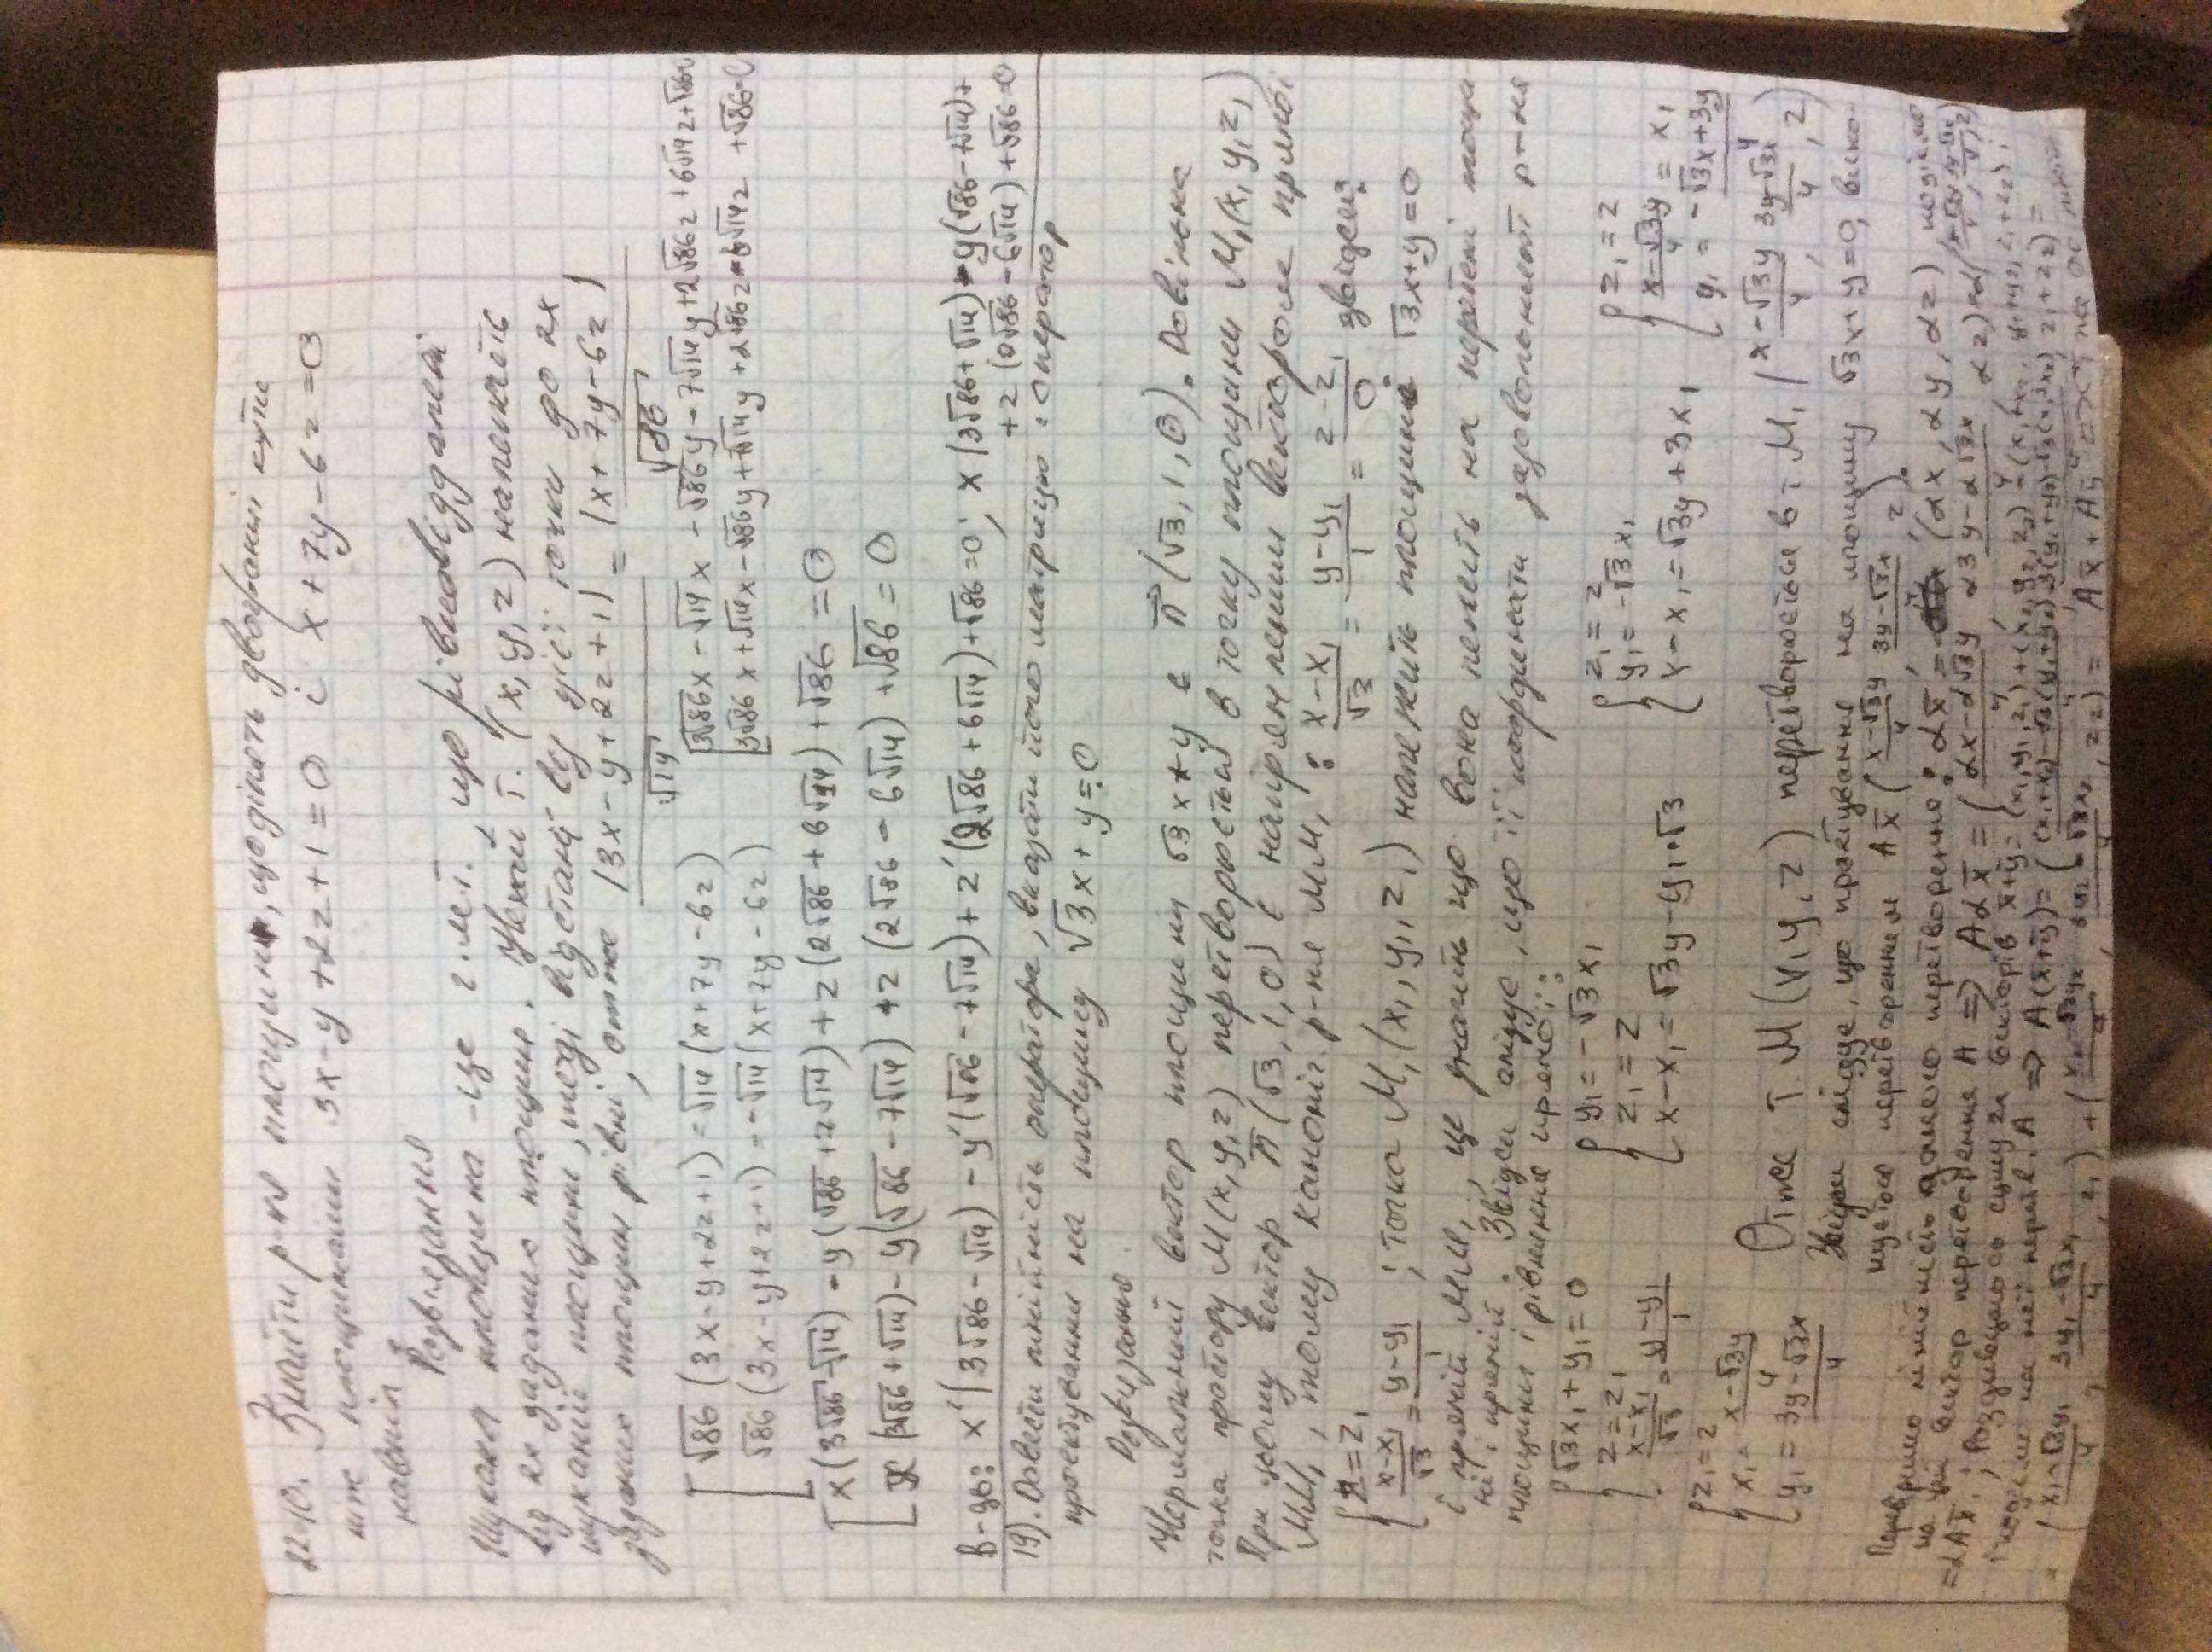 22.10. Знайти р-ня площини, що ділять двогранні кути
між площинами 3x-y+2z+1=0 і x+7y-6z=0
навпіл.
Розв'язання
Шукана площина - це г.м.т., що рівновіддалені
від 2х заданих площин. Нехай т. (x,y,z) належить
шуканій площині, тоді відстані від цієї точки до 2х
заданих площин рівні, отже |3x-y+2z+1|/√14 = |x+7y-6z|/√86
[ √86 (3x-y+2z+1)=√14 (x+7y-6z) [ 3√86x-√14x-√86y-7√14y+2√86z+6√14z+√86
√86 (3x-y+2z+1)=-√14(x+7y-6z) 3√86x+√14x-√86y+7√14y+2√86z-6√14z+√86=0
[ x(3√86-√14)-y(√86+7√14)+z(2√86+6√14)+√86=0
x(3√86+√14)-y(√86-7√14)+z(2√86-6√14)+√86=0
В-дь: x(3√86-√14)-y(√86-7√14)+z(2√86+6√14)+√86=0; x(3√86+√14)-y(√86-7√14)+
+z(2√86-6√14)+√86=0
19). Довести лінійність оператора, вказати його матрицю: оператор
проектування на площину √3x+y=0
Розв'язання.
Нормальний вектор площини √3x+y є n⃗(√3,1,0). Довільна
точка простору M(x,y,z) перетворюється в точку площини M₁(x₁y₁z₁)
При цьому вектор n̅(√3,1,0) є напрямленим вектором прямої
MM₁, тому каноніч. р-ня MM₁: (x-x₁)/√3 = (y-y₁)/1 = (z-z₁)/0 звідси:
{ z=z₁
(x-x₁)/√3 = (y-y₁)/1 ; точка M₁(x₁,y₁,z₁) належить площині √3x+y=0
і прямій MM₁, це значить що вона лежить на перетені площи-
ні і прямій. Звідси слідує, що її координати задовольняють р-ня
площини і рівняння прямої:
{ √3x₁+y₁=0 { y₁=-√3x₁ { z₁=z { z₁=z
z=z₁ z₁=z y₁=-√3x₁ (x-√3y)/4=x₁
(x-x₁)/√3=(y-y₁)/1 x-x₁=√3y-y₁·√3 x-x₁=√3y+3x₁ y₁=(-√3x+3y)/4
{ z₁=z
x₁=(x-√3y)/4
y₁=(3y-√3x)/4
Отже т. M(x,y,z) перетворюється в т. M₁((x-√3y)/4, (3y-√3x)/4, z)
Звідси слідує, що проктування на площину √3x+y=0, вико-
нується перетворенням Ax̅((x-√3y)/4, (3y-√3x)/4, z).
Перевіримо лінійність даного перетворення: αx̅=(αx,αy,αz), подіємо
на цей вектор перетворення A ⇒ Aαx̅=((αx-α√3y)/4, (α3y-α√3x)/4, αz)=α((x-√3y)/4, (3y-√3x)/4, z)
=αAx̅.; Роздивимось суму 2х векторів x̅+y̅=(x₁,y₁,z₁)+(x₂,y₂,z₂)=(x₁+x₂, y₁+y₂, z₁+z₂);
і подіємо на неї перетв. A ⇒ A(x̅+y̅)=(((x₁+x₂)-√3(y₁+y₂))/4, (3(y₁+y₂)-√3(x₁+x₂))/4, z₁+z₂)=
=((x₁-√3y₁)/4, (3y₁-√3x₁)/4, z₁)+((x₂-√3y₂)/4, (3y₂-√3x₂)/4, z₂)=Ax̅+Ay̅